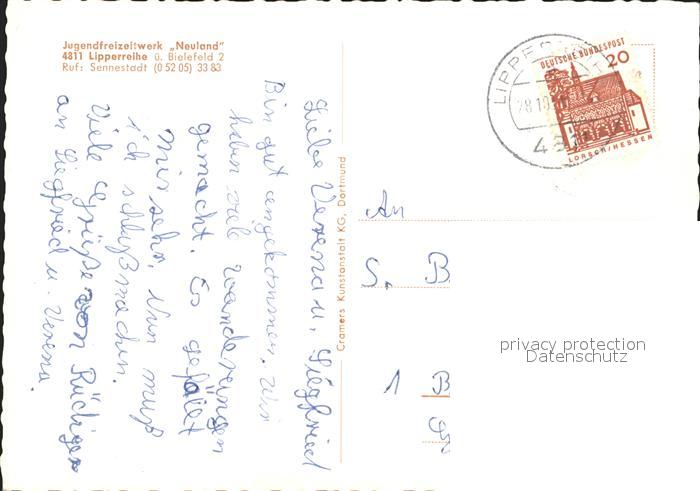 Jugendfreizeitwerk „Neuland"
4811 Lipperreihe ü. Bielefeld 2
Ruf: Sennestadt (0 52 05) 33 83
Liebe Verena u. Siegfried
Bin gut angekommen. Wir
haben viele Wanderungen
gemacht. Es gefällt
mir sehr. Nun muß
ich schluß machen.
Viele Grüße von Rüdiger
an Siegfried u. Verena.
Cramers Kunstanstalt KG, Dortmund
DEUTSCHE BUNDESPOST
20
LORSCH/HESSEN
LIPPER
28.10.
48
An
S. B
1 B
privacy protection
Datenschutz